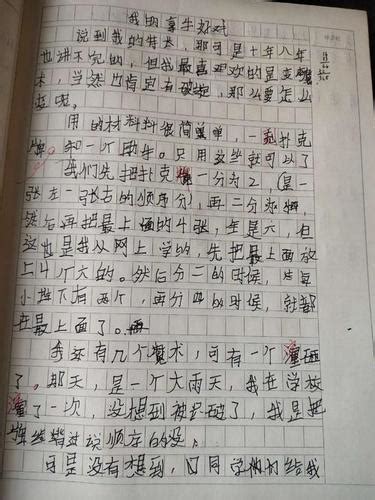 我的拿手好戏
说到我的特长，那可是十年八年
也讲不完的，但我最喜欢的是变魔
术，当然也肯定有破绽，那么要怎么
变呢。
用的材料很简单，一克扑克
牌。和一个助手。只用这些就可以了
我们先把扑克牌一分为2，(是一
张左一张右的顺序分)，再二分为四，
然后再把最上面的4张，
这也是我从网上学的，先把最上面放
上4个大的。然后分二的时候，
小推下有两个，再分四的时候，就都
在最上面了。
我还有几个魔术，可有一个演砸
了。那天，是一个大雨天，我在学校
演了一次，没想到被识破了，我是把
顺在的没，
可是没有想到，同学们给我